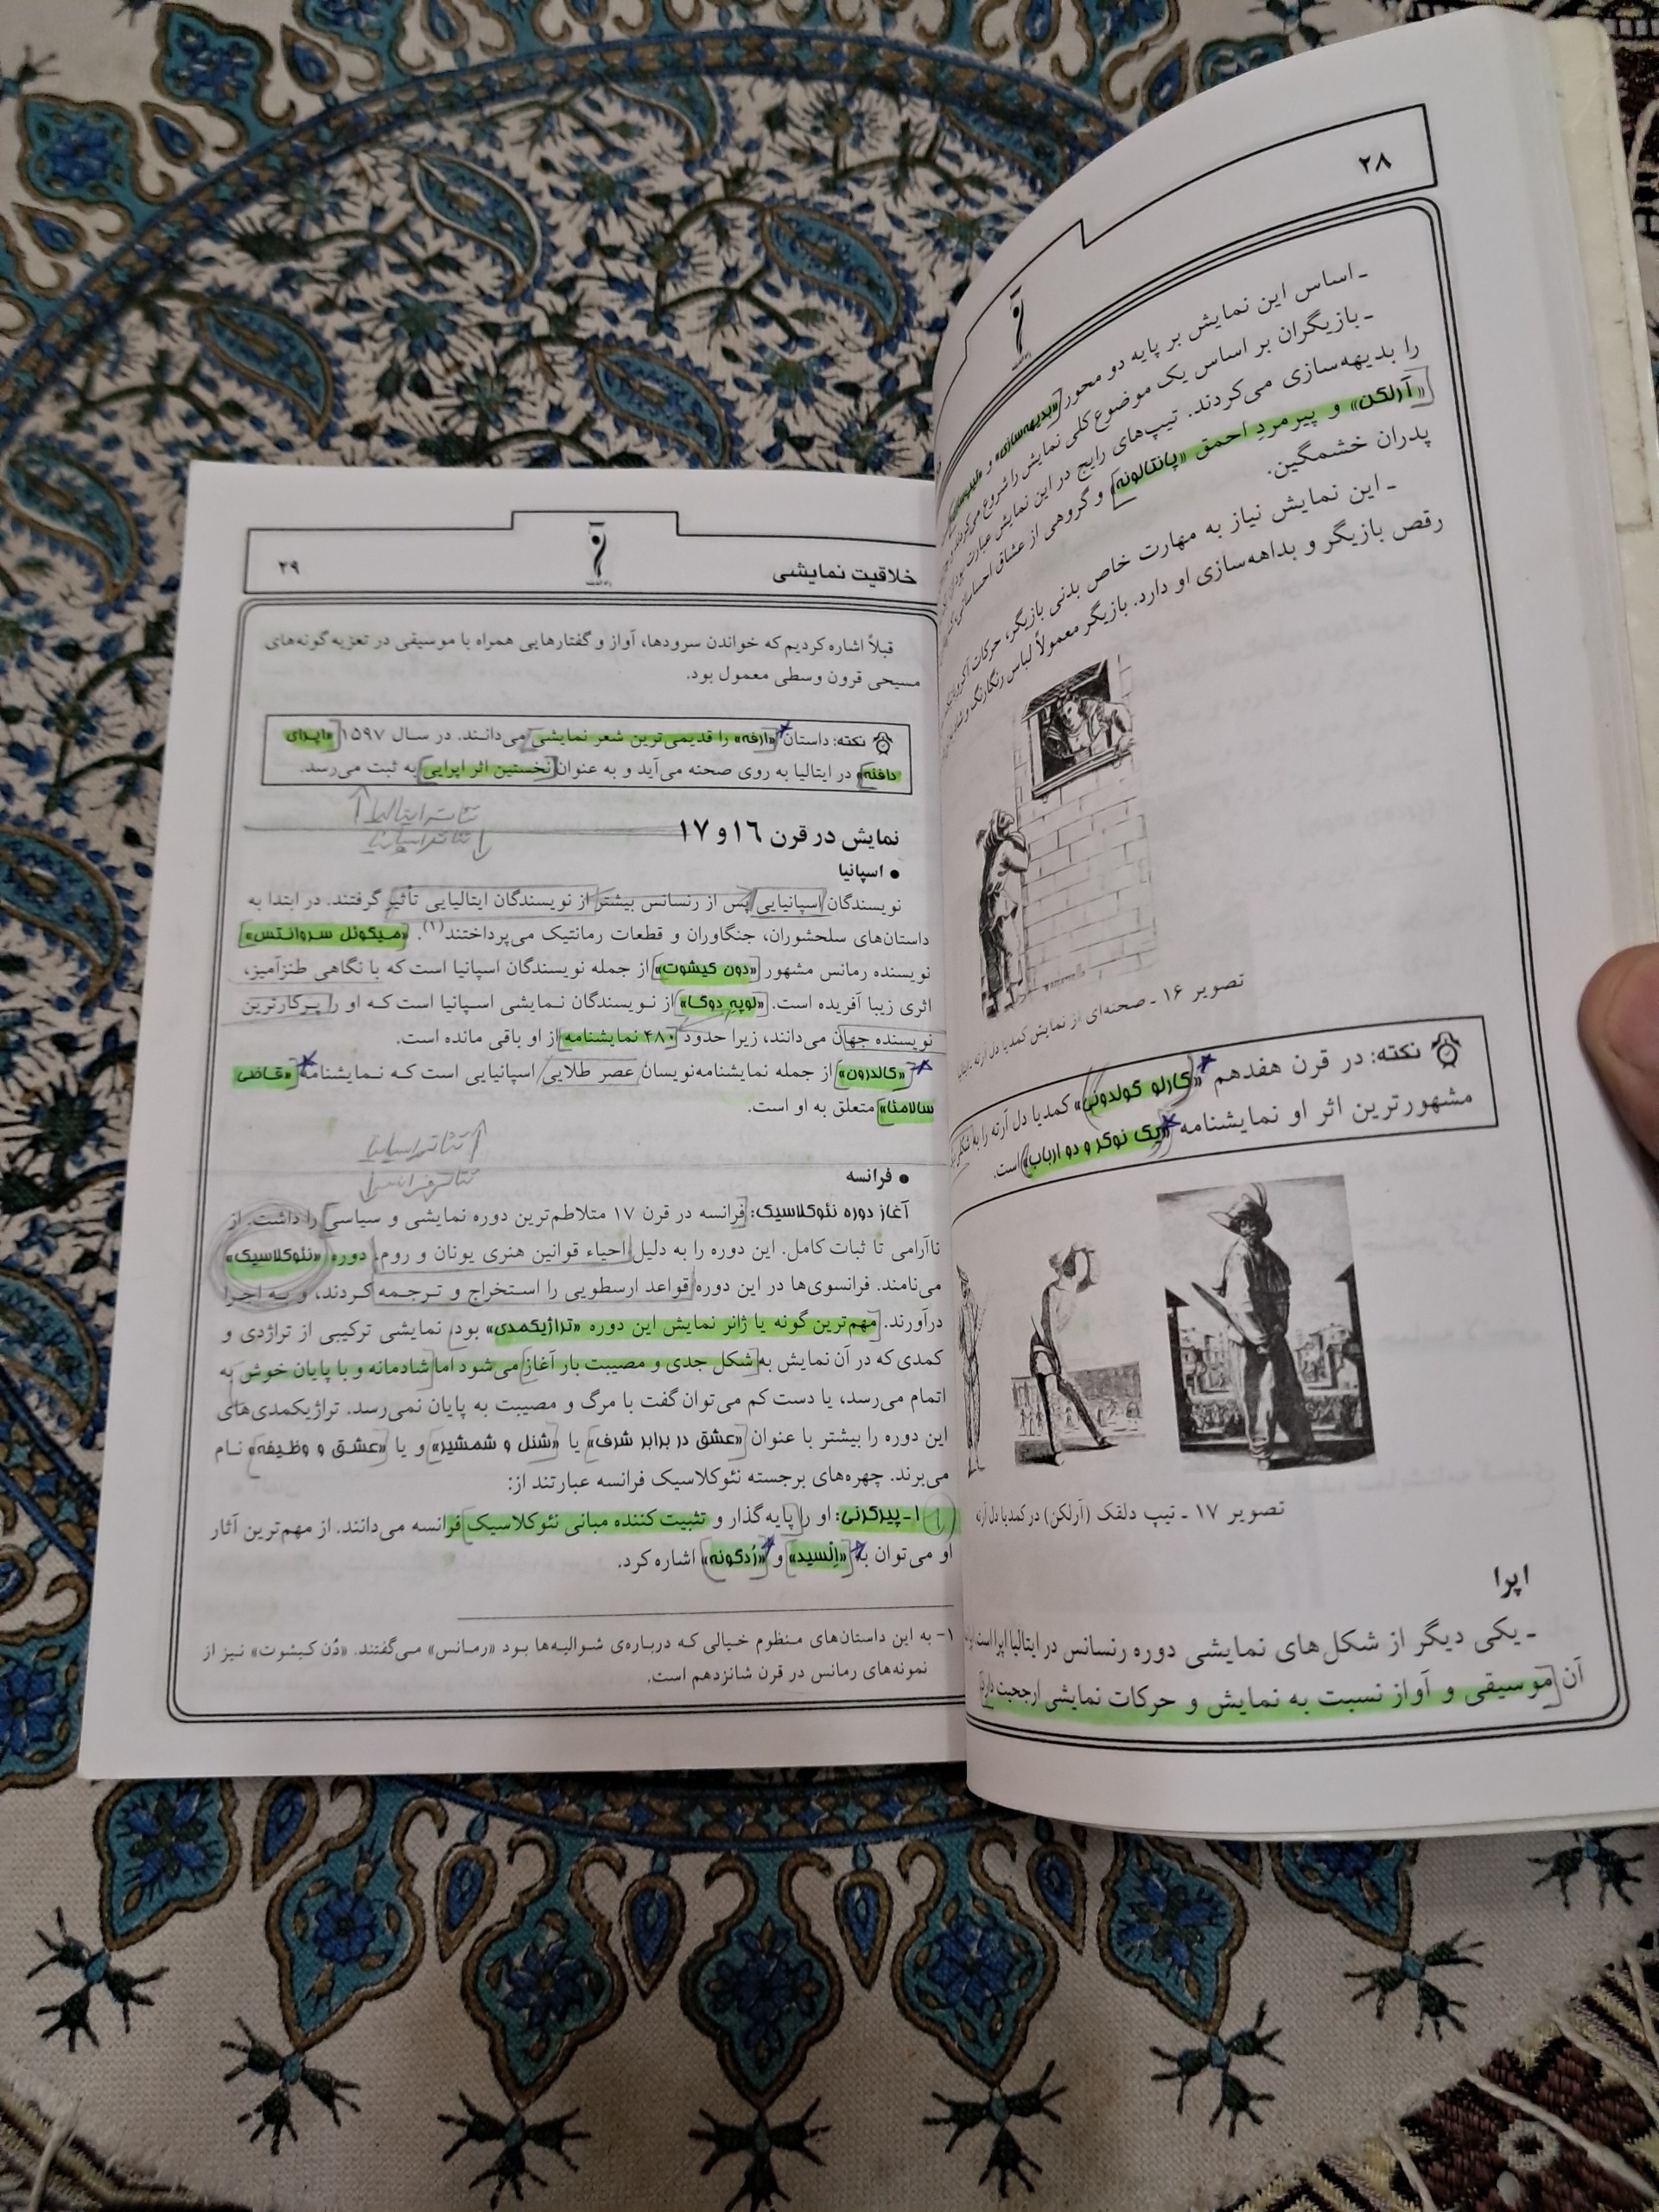 ۲۸
ـ اساس این نمایش بر پایه دو محور «بدیهه‌سازی» و
ـ بازیگران بر اساس یک موضوع کلی نمایش را شروع می‌کردند
را بدیهه‌سازی می‌کردند. تیپ‌های رایج در این نمایش عبارت بودند از
«آرلکن» و پیرمردِ احمق «پانتالونه» و گروهی از عشاق احساساتی و
پدران خشمگین.
ـ این نمایش نیاز به مهارت خاص بدنی بازیگر، حرکات
رقص بازیگر و بداهه‌سازی او دارد. بازیگر معمولاً لباس رنگارنگ
تصویر ۱۶ ـ صحنه‌ای از نمایش کمدیا دل آرته ـ
نکته: در قرن هفدهم «کارلو گولدونی» کمدیا دل آرته را به
مشهورترین اثر او نمایشنامه «یک نوکر و دو ارباب» است.
تصویر ۱۷ ـ تیپ دلقک (آرلکن) در کمدیا دل آرته
اپرا
ـ یکی دیگر از شکل‌های نمایشی دوره رنسانس در ایتالیا اپرا است
آن موسیقی و آواز نسبت به نمایش و حرکات نمایشی ارجحیت دارد
خلاقیت نمایشی
۲۹
قبلاً اشاره کردیم که خواندن سرودها، آواز و گفتارهایی همراه با موسیقی در تعزیه‌گونه‌های
مسیحی قرون وسطی معمول بود.
نکته: داستان «ارفه» را قدیمی‌ترین شعر نمایشی می‌دانند. در سال ۱۵۹۷ «اپرای
دافنه» در ایتالیا به روی صحنه می‌آید و به عنوان نخستین اثر اپرایی به ثبت می‌رسد.
تئاتر ایتالیا
تئاتر اسپانیا
نمایش در قرن ۱۶ و ۱۷
• اسپانیا
نویسندگان اسپانیایی پس از رنسانس بیشتر از نویسندگان ایتالیایی تأثیر گرفتند. در ابتدا به
داستان‌های سلحشوران، جنگاوران و قطعات رمانتیک می‌پرداختند(۱). «میگوئل سروانتس»
نویسنده رمانس مشهور «دون کیشوت» از جمله نویسندگان اسپانیا است که با نگاهی طنزآمیز،
اثری زیبا آفریده است. «لوپه دوگا» از نویسندگان نمایشی اسپانیا است که او را پرکارترین
نویسنده جهان می‌دانند، زیرا حدود ۴۸۰ نمایشنامه از او باقی مانده است.
«کالدرون» از جمله نمایشنامه‌نویسان عصر طلایی اسپانیایی است که نمایشنامه «قاضی
سالامئا» متعلق به او است.
تئاتر اسپانیا
تئاتر فرانسه
• فرانسه
آغاز دوره نئوکلاسیک: فرانسه در قرن ۱۷ متلاطم‌ترین دوره نمایشی و سیاسی را داشت. از
ناآرامی تا ثبات کامل. این دوره را به دلیل احیاء قوانین هنری یونان و روم، دوره «نئوکلاسیک»
می‌نامند. فرانسوی‌ها در این دوره قواعد ارسطویی را استخراج و ترجمه کردند، و به اجرا
درآورند. مهم‌ترین گونه یا ژانر نمایش این دوره «تراژیکمدی» بود، نمایشی ترکیبی از تراژدی و
کمدی که در آن نمایش به شکل جدی و مصیبت بار آغاز می‌شود اما شادمانه و با پایان خوش به
اتمام می‌رسد، یا دست کم می‌توان گفت با مرگ و مصیبت به پایان نمی‌رسد. تراژیکمدی‌های
این دوره را بیشتر با عنوان «عشق در برابر شرف» یا «شنل و شمشیر» و یا «عشق و وظیفه» نام
می‌برند. چهره‌های برجسته نئوکلاسیک فرانسه عبارتند از:
۱ ـ پیرکرنی: او را پایه‌گذار و تثبیت کننده مبانی نئوکلاسیک فرانسه می‌دانند. از مهم‌ترین آثار
او می‌توان به «اِلسید» و «رُدگونه» اشاره کرد.
۱- به این داستان‌های منظوم خیالی که درباره‌ی شوالیه‌ها بود «رمانس» می‌گفتند. «دُن کیشوت» نیز از
نمونه‌های رمانس در قرن شانزدهم است.